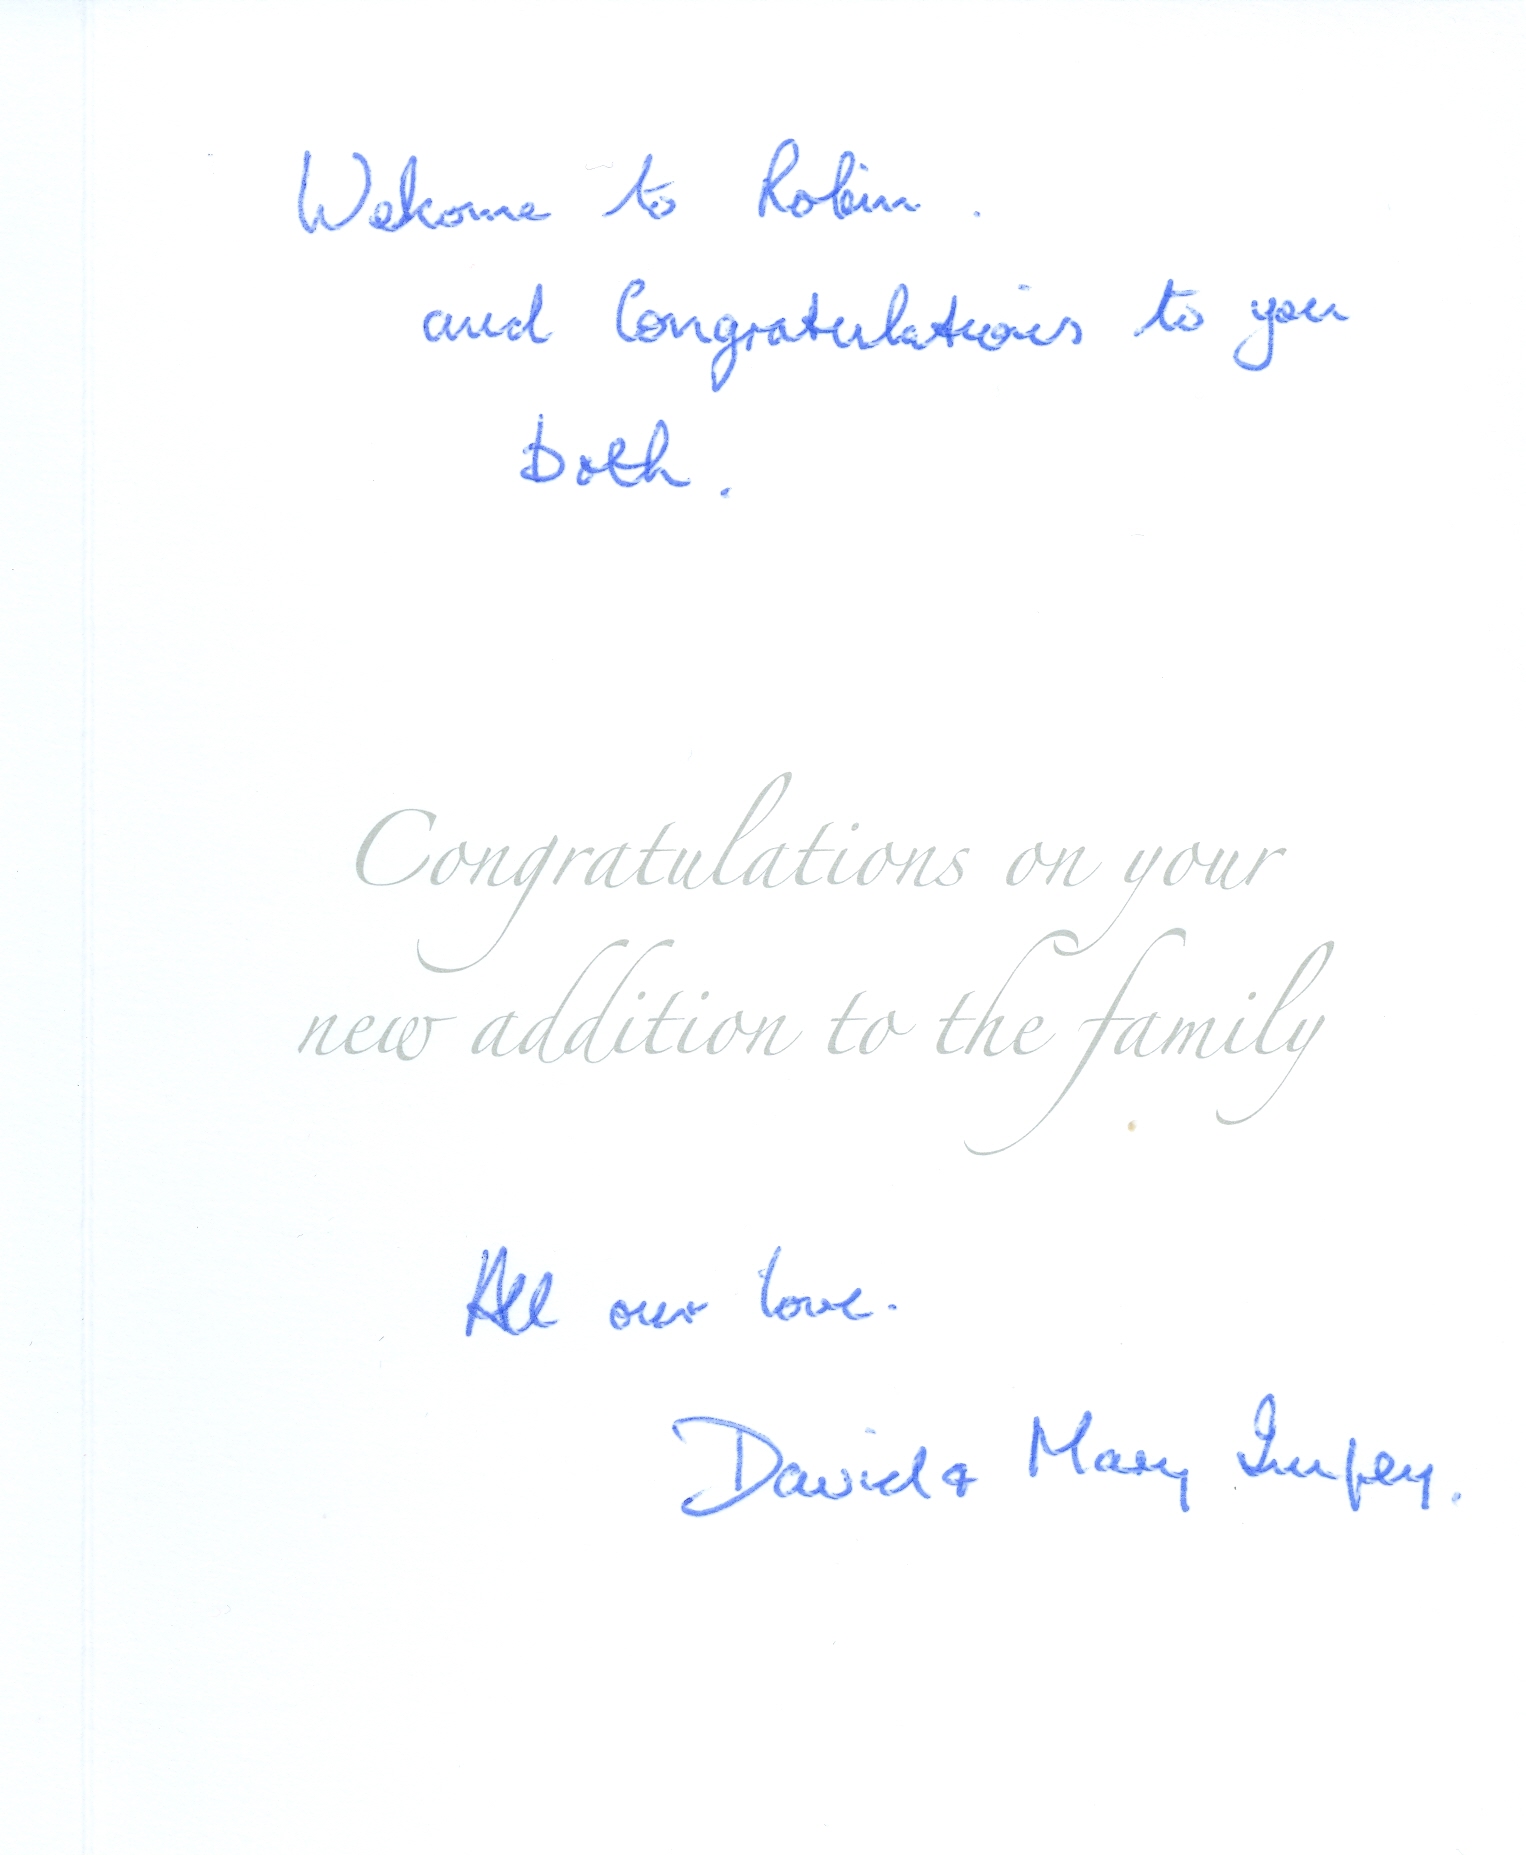 Welcome to Robin.
and Congratulations to you
both.
Congratulations on your
new addition to the family
All our love.
David & Mary Impey.